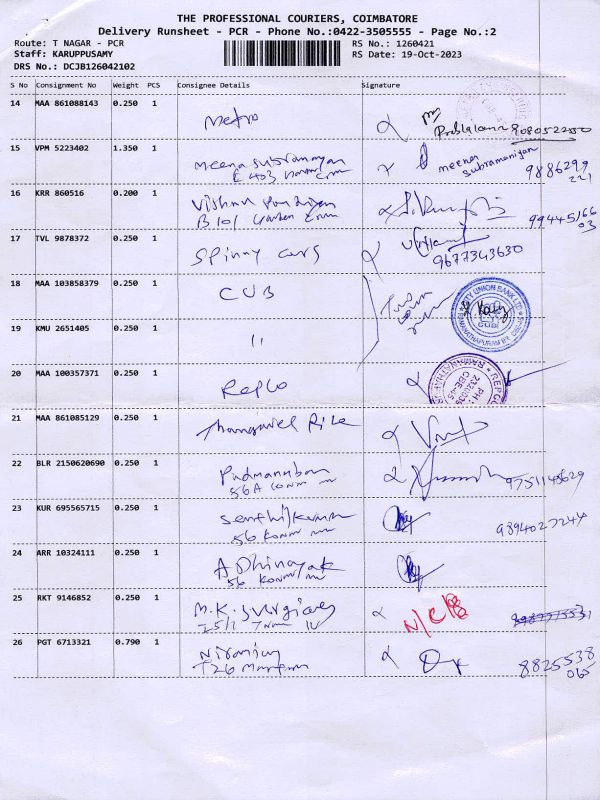 THE PROFESSIONAL COURIERS, COIMBATORE
Delivery Runsheet - PCR - Phone No.:0422-3505555 - Page No.:2
Route: T NAGAR - PCR RS No.: 1260421
Staff: KARUPPUSAMY RS Date: 19-Oct-2023
DRS No.: DCJB126042102
S No Consignment No Weight PCS Consignee Details Signature
14 MAA 861088143 0.250 1 Metro
15 VPM 5223402 1.350 1 Meena Subramanyan meena subramaniyan
E 403 9886299
221
16 KRR 860516 0.200 1 Vishnu Pandiyan
B 101 99445166
03
17 TVL 9878372 0.250 1 Spinny cars 9677343630
18 MAA 103858379 0.250 1 CUB
CITY UNION BANK LTD
CUB
19 KMU 2651405 0.250 1 "
20 MAA 100357371 0.250 1 Repco
21 MAA 861085129 0.250 1
22 BLR 2150620690 0.250 1 Padmanaban
56A 9751148629
23 KUR 695565715 0.250 1 Senthilkumar
56 9894027244
24 ARR 10324111 0.250 1
56
25 RKT 9146852 0.250 1 M.K. N/C
26 PGT 6713321 0.790 1 8825538
T26 065